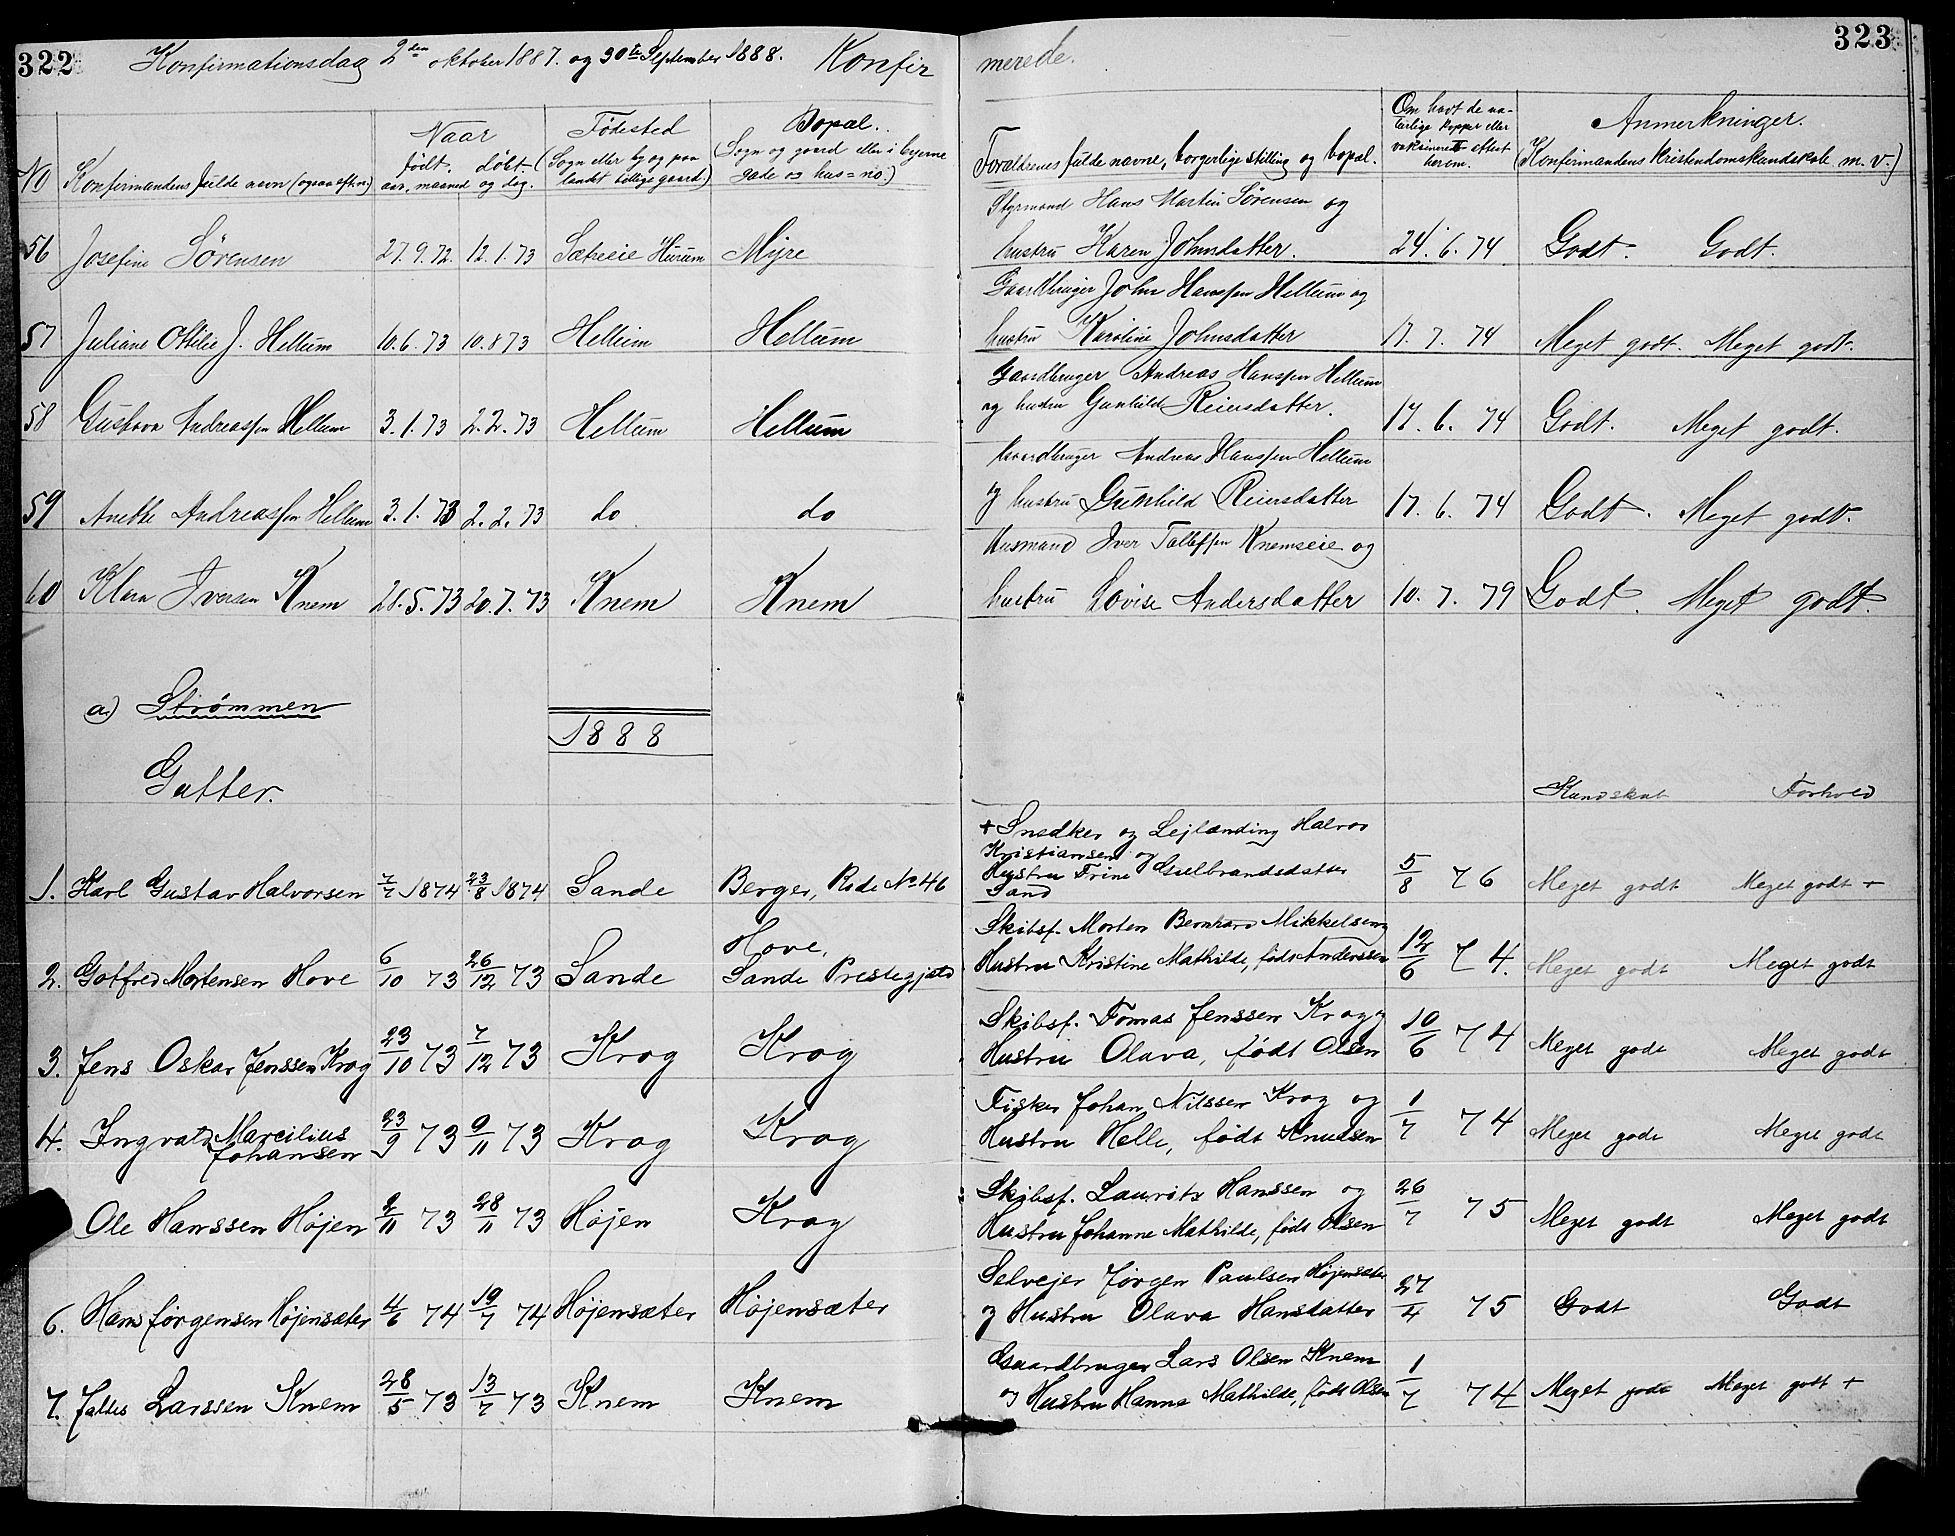 322 Konfirmationsdag 2den oktober 1887. og 30te September 1888. Konfir
merede. 323
No Konfirmandens fulde navn (ogsaa eft.n.) Naar født, døbt. aar, maaned og dag. Fødested (Sogn eller by og paa landet tillige gaard.) Bopæl. (Sogn og gaard eller i byerne gade og hus=no.) Forældrenes fulde navne, borgerlige stilling og bopæl. Om havt de naturlige kopper eller vaksineret attest herom. Anmerkninger. (Konfirmandens kristendomskundskab m. v.)
Styrmand Hans Martin Sørensen og
56 Josefine Sørensen 27.9.72. 12.1.73 Sætreeie Hurum Myre hustru Karen Johnsdatter. 24.6.74 Godt. Godt.
Gaardbruger John Hanssen Hellum og
57 Juliane Otilie J. Hellum 10.6.73 10.8.73 Hellum Hellum hustru Karoline Johnsdatter 17.7.74 Meget godt. Meget godt.
Gaardbruger Andreas Hanssen Hellum
58 Gustava Andreassen Hellum 3.1.73 2.2.73 Hellum Hellum og hustru Gunhild Reiersdatter. 17.6.74 Godt. Meget godt.
Gaardbruger Andreas Hanssen Hellum
59 Anette Andreassen Hellum 3.1.73 2.2.73 do do og hustru Gunhild Reiersdatter 17.6.74 Godt. Meget godt.
Husmand Iver Tollefsen Knemseie og
60 Klara Iversen Knem 28.5.73 20.7.73 Knem Knem hustru Lovise Andersdatter 10.7.79 Godt. Meget godt.
a.) Strømmen
1888
Gutter.
Kundskab Forhold
+ Snedker og Lejlænding Halvor
Kristiansen og
1. Karl Gustav Halvorsen 7/7 1874 23/8 1874 Sande Berger, Rode No 46 Hustru Trine Gulbrandsdatter 5/8 76 Meget godt Meget godt +
Sand
Hove, Skibsf. Morten Bernhard Mikkelsen og
2. Gotfred Mortensen Hove 6/10 73 26/12 73 Sande Sande Prestegjæld Hustru Kristine Mathilde, født Anderssen 12/6 74. Meget godt Meget godt
Skibsf. Tomas Jenssen Krog og
3. Jens Oskar Jenssen Krog 23/10 73 7/12 73 Krog Krog Hustru Olava, født Olsen 10/6 74 Meget godt Meget godt
Fisker Johan Nilssen Krog og
4. Ingvald Marcilius Johansen 23/9 73 9/11 73 Krog Krog Hustru Helle, født Knudsen 1/7 74 Meget godt Meget godt
Skibsf. Laurits Hanssen og
Ole Hanssen Højen 2/11 73 28/11 73 Højen Krog Hustru Johanne Mathilde, født Olsen 26/7 75 Meget godt Meget godt
Selvejer Jørgen Paulsen Højensæter
6. Hans Jørgensen Højensæter 4/6 74 19/7 74 Højensæter Højensæter og Hustru Olava Hansdatter 27/4 75 Godt Godt
Gaardbruger Lars Olsen Knem
7. Jaltes Larssen Knem 28/5 73 13/7 73 Knem Knem og Hustru Hanna Mathilde, født Olsen 1/7 74 Meget godt Meget godt +